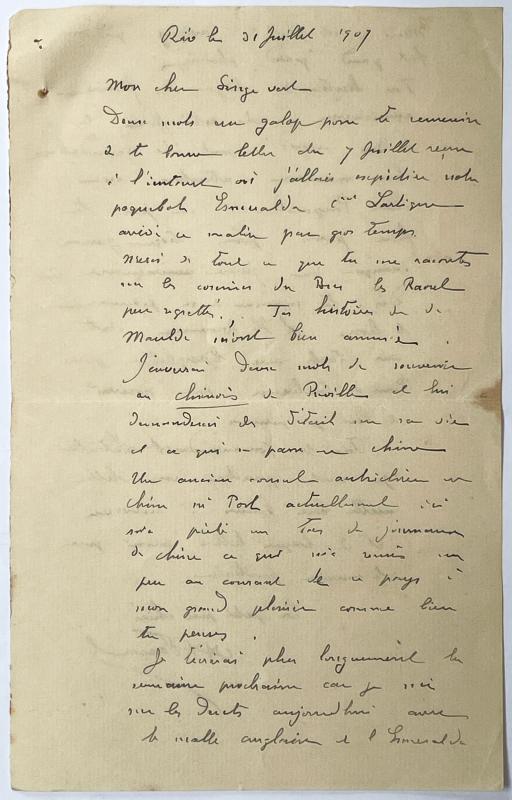 Rio le 31 Juillet 1907
Mon cher Singe vert
Deux mots au galop pour te remercier
de ta bonne lettre du 7 Juillet reçue
à l'instant où j'allais expédier notre
paquebot Esmeralda Cne Lartigue
arrivé ce matin par gros temps.
Merci de tout ce que tu me racontes
sur les du les
peu regretté. Tes histoires de de
Maulde m'ont bien amusé.
J'enverrai deux mots de souvenir
au chinois de Préville et lui
demanderai des détails sur sa vie
et ce qui se passe en chine
Un ancien consul autrichien en
chine à Port actuellement ici
m'a prêté un tas de journaux
de chine ce qui m'a remis un
peu au courant de ce pays à
mon grand plaisir comme bien
tu penses.
Je t'écrirai plus longuement la
semaine prochaine car je suis
sur les dents aujourd'hui avec
la malle anglaise et l'Esmeralda